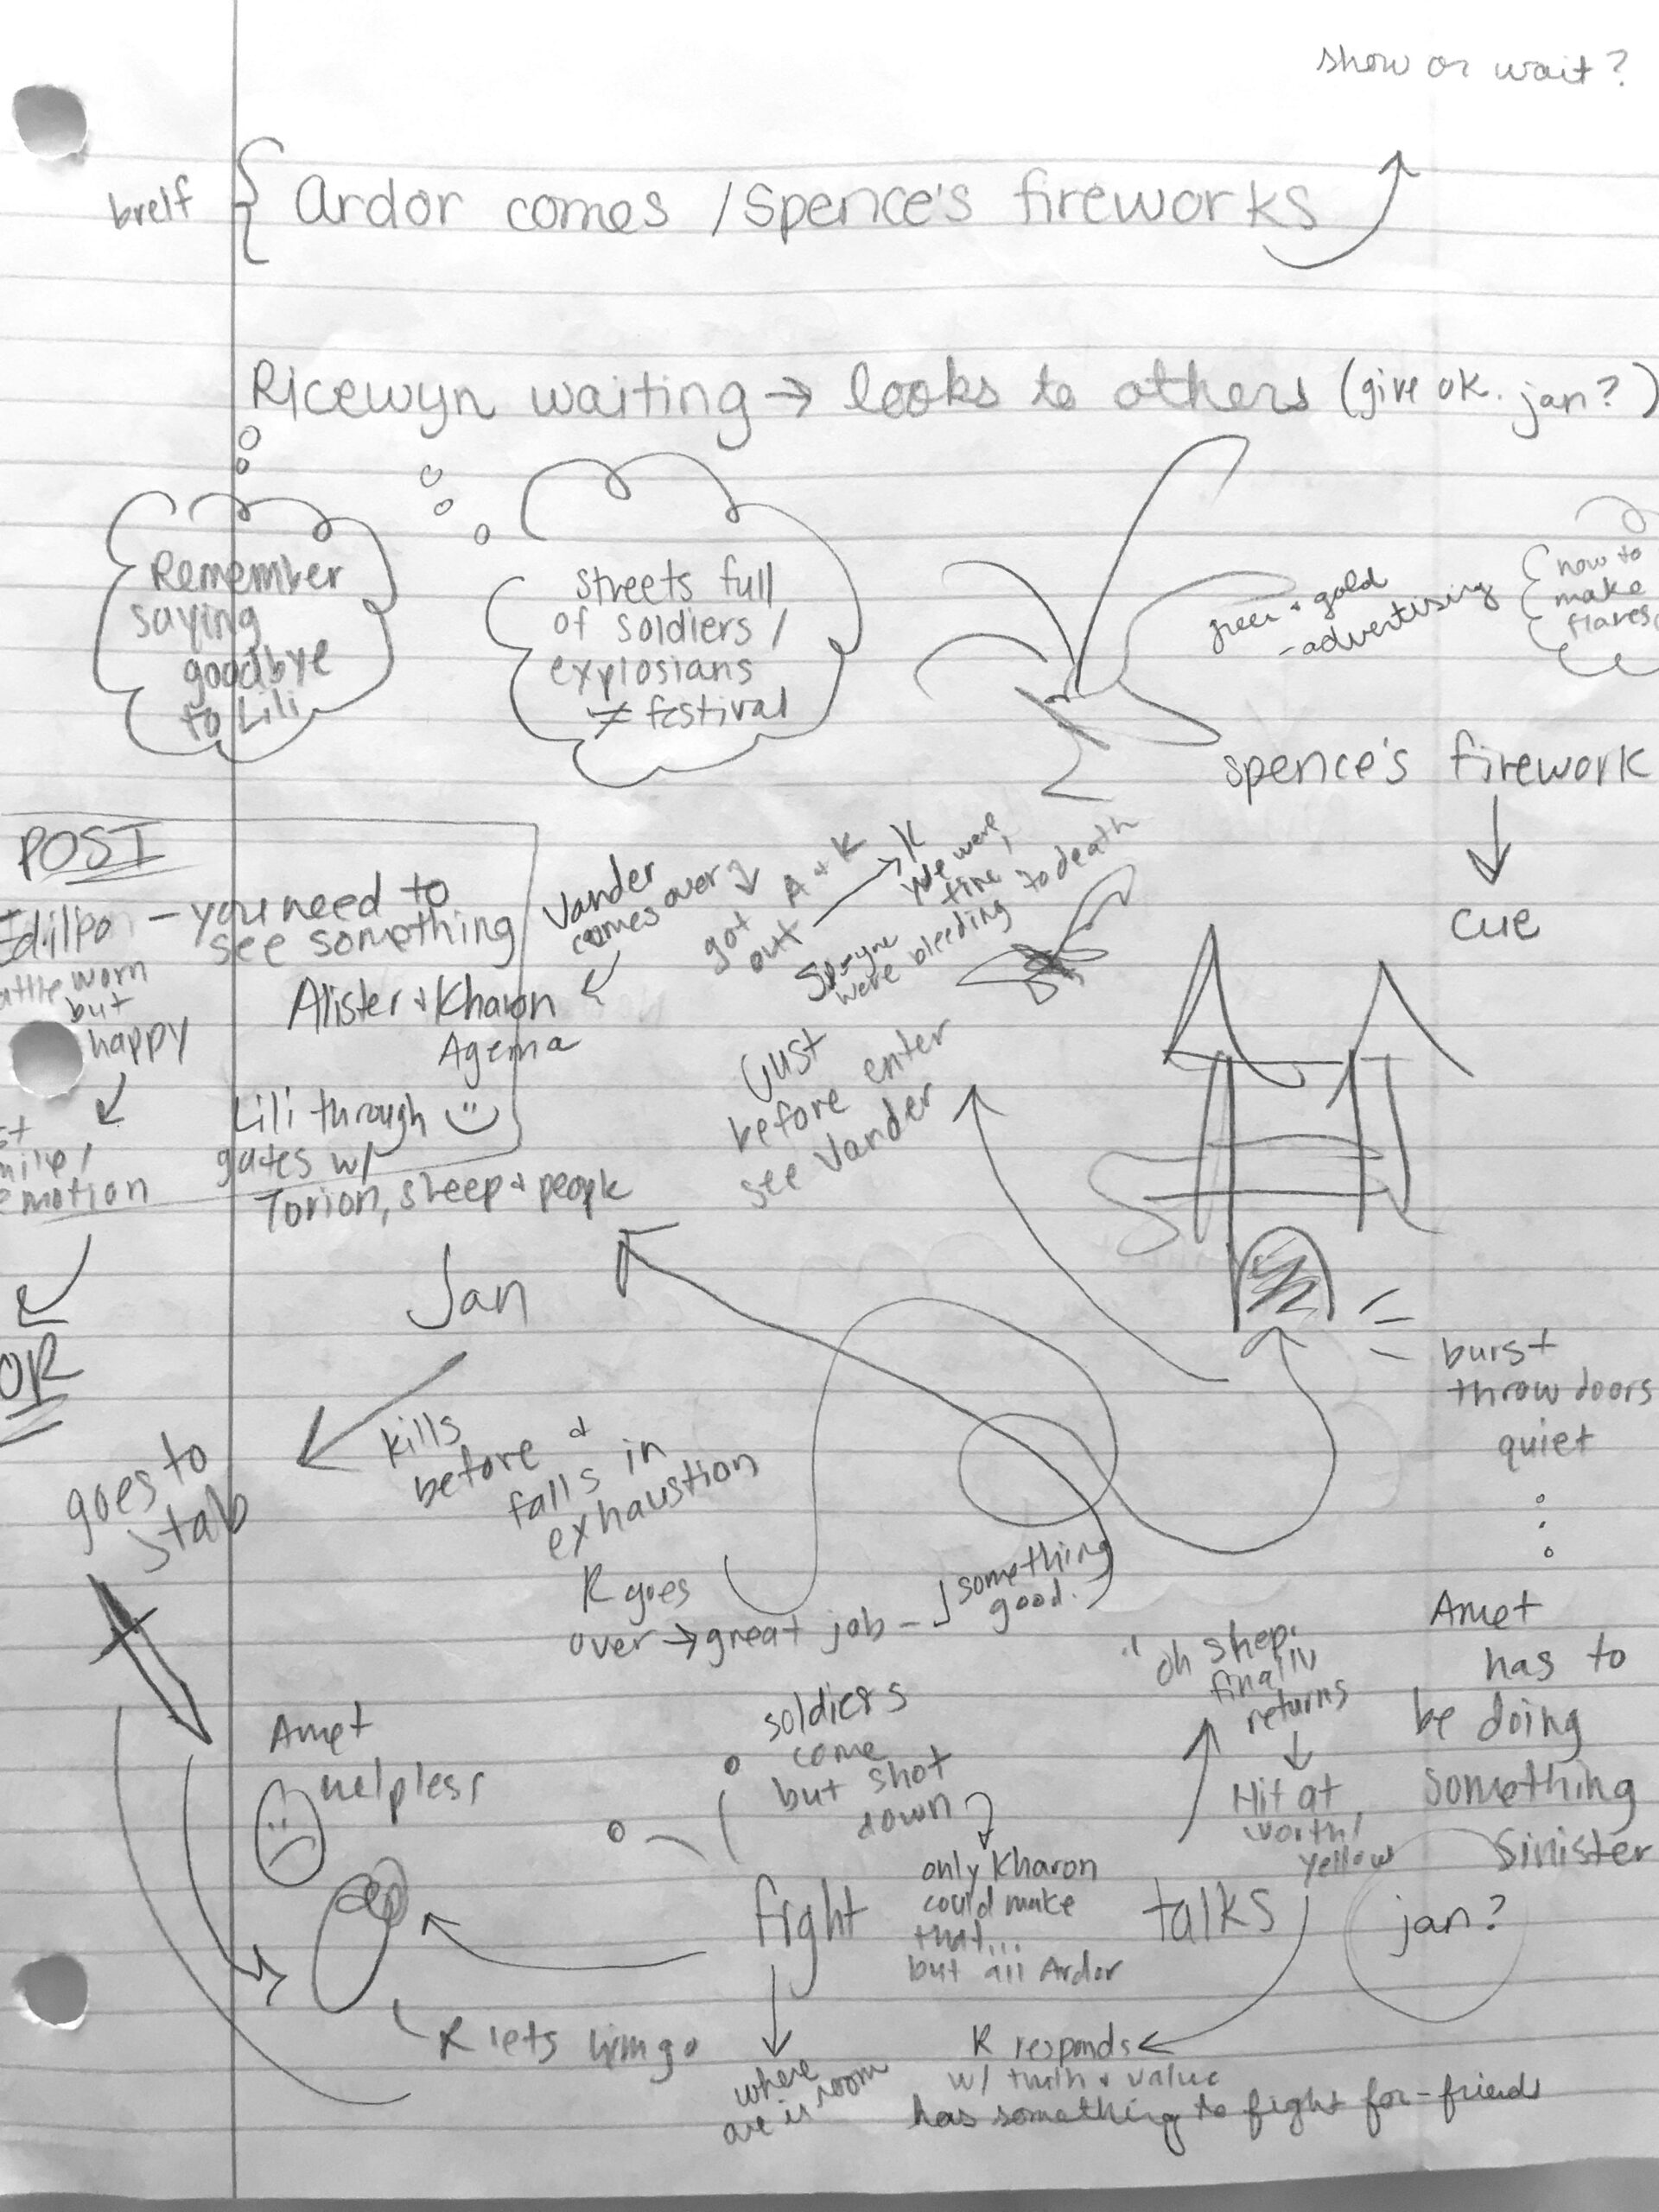 show or wait?
breif { Ardor comes / Spence's fireworks
Ricewyn waiting → looks to others (give ok. jan?)
Remember
saying
goodbye
to Lili
streets full
of soldiers /
explosians
≠ festival
green + gold
- advertising
how to
make
flares
spence's firework
cue
POST
- you need to
see something
worn
but
happy
emotion
Alister + Kharon
Agema
Lili through
gates w/
Torion, sheep + people
Vander
comes over
A + K
got
out
K
were
fine
were bleeding to death
Just
before enter
see Vander
Jan
OR
goes to
stab
kills
before &
falls in
exhaustion
R goes
over → great job -
something
good.
burst
throw doors
quiet
Amet
has to
be doing
something
sinister
jan?
"oh shep.
finally
returns
Hit at
worth/
yellow
talks
soldiers
come
but shot
down
only Kharon
could make
that...
but all Ardor
fight
Amet
helpless
R lets him go
where
are is room
R responds
w/ truth + value
has something to fight for - friends